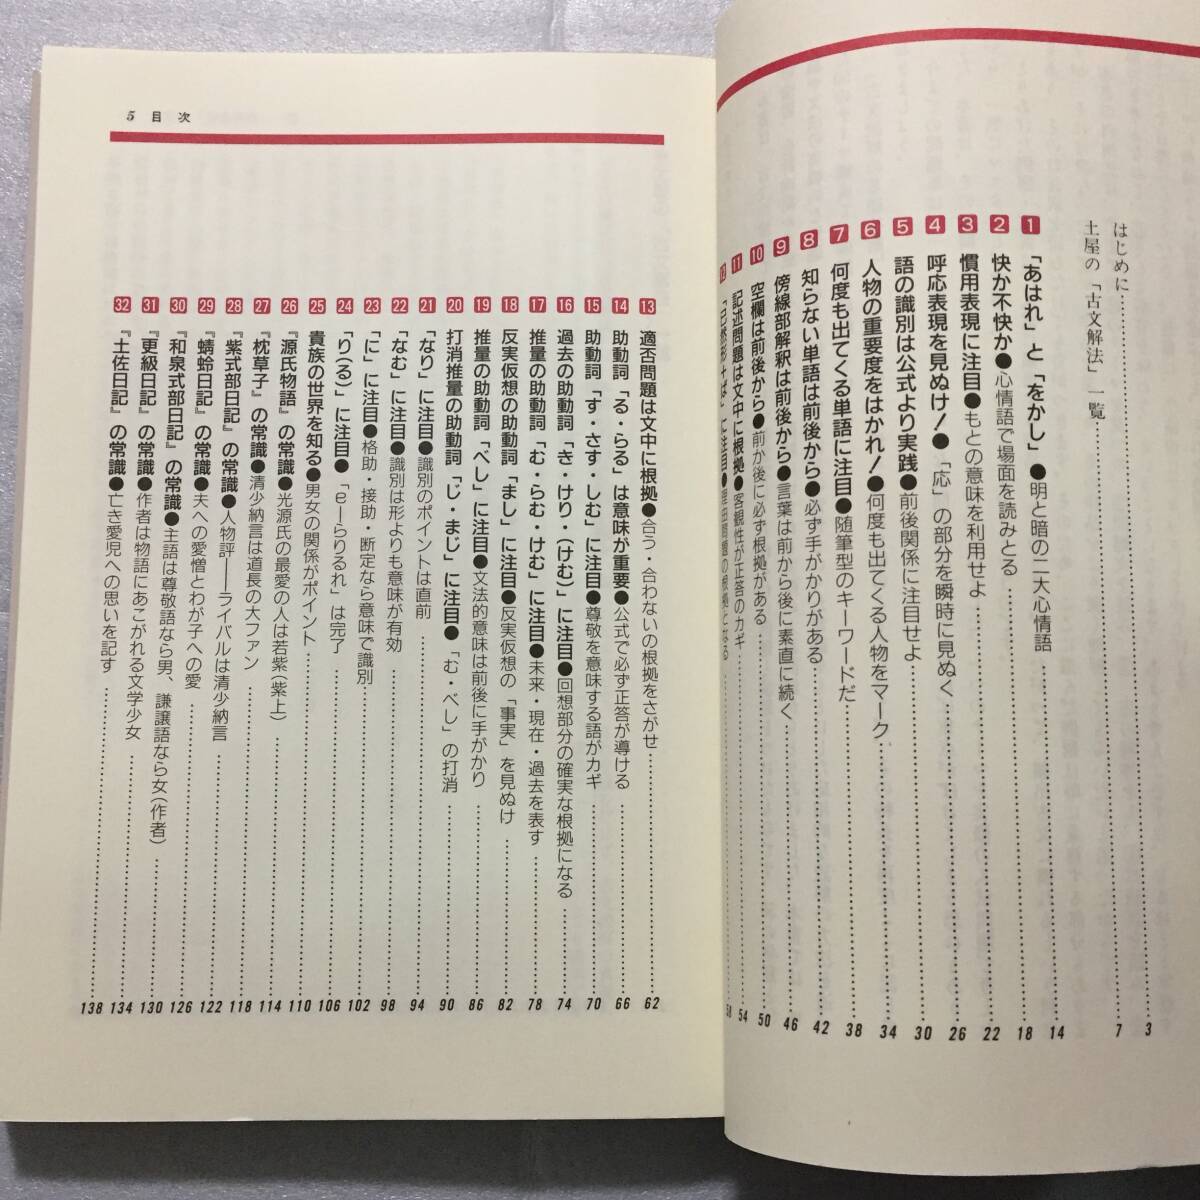 はじめに……3
土屋の「古文解法」一覧……7
1 「あはれ」と「をかし」●明と暗の二大心情語……14
2 快か不快か●心情語で場面を読みとる……18
3 慣用表現に注目●もとの意味を利用せよ……22
4 呼応表現を見ぬけ！●「応」の部分を瞬時に見ぬく……26
5 語の識別は公式より実践●前後関係に注目せよ……30
6 人物の重要度をはかれ！●何度も出てくる人物をマーク……34
7 何度も出てくる単語に注目●随筆型のキーワードだ……38
8 知らない単語は前後から●必ず手がかりがある……42
9 傍線部解釈は前後から●言葉は前から後に素直に続く……46
10 空欄は前後から●前か後に必ず根拠がある……50
11 記述問題は文中に根拠●客観性が正答のカギ……54
12 「已然形＋ば」に注目●理由問題の根拠となる……58
5 目次
13 適否問題は文中に根拠●合う・合わないの根拠をさがせ……62
14 助動詞「る・らる」は意味が重要●公式で必ず正答が導ける……66
15 助動詞「す・さす・しむ」に注目●尊敬を意味する語がカギ……70
16 過去の助動詞「き・けり（けむ）」に注目●回想部分の確実な根拠になる……74
17 推量の助動詞「む・らむ・けむ」に注目●未来・現在・過去を表す……78
18 反実仮想の助動詞「まし」に注目●反実仮想の「事実」を見ぬけ……82
19 推量の助動詞「べし」に注目●文法的意味は前後に手がかり……86
20 打消推量の助動詞「じ・まじ」に注目●「む・べし」の打消……90
21 「なり」に注目●識別のポイントは直前……94
22 「なむ」に注目●識別は形よりも意味が有効……98
23 「に」に注目●格助・接助・断定なら意味で識別……102
24 「り（る）」に注目●「eーらりるれ」は完了……106
25 貴族の世界を知る●男女の関係がポイント……110
26 『源氏物語』の常識●光源氏の最愛の人は若紫（紫上）……114
27 『枕草子』の常識●清少納言は道長の大ファン……118
28 『紫式部日記』の常識●人物評――ライバルは清少納言……118
29 『蜻蛉日記』の常識●夫への愛憎とわが子への愛……122
30 『和泉式部日記』の常識●主語は尊敬語なら男、謙譲語なら女（作者）……126
31 『更級日記』の常識●作者は物語にあこがれる文学少女……130
32 『土佐日記』の常識●亡き愛児への思いを記す……134
138